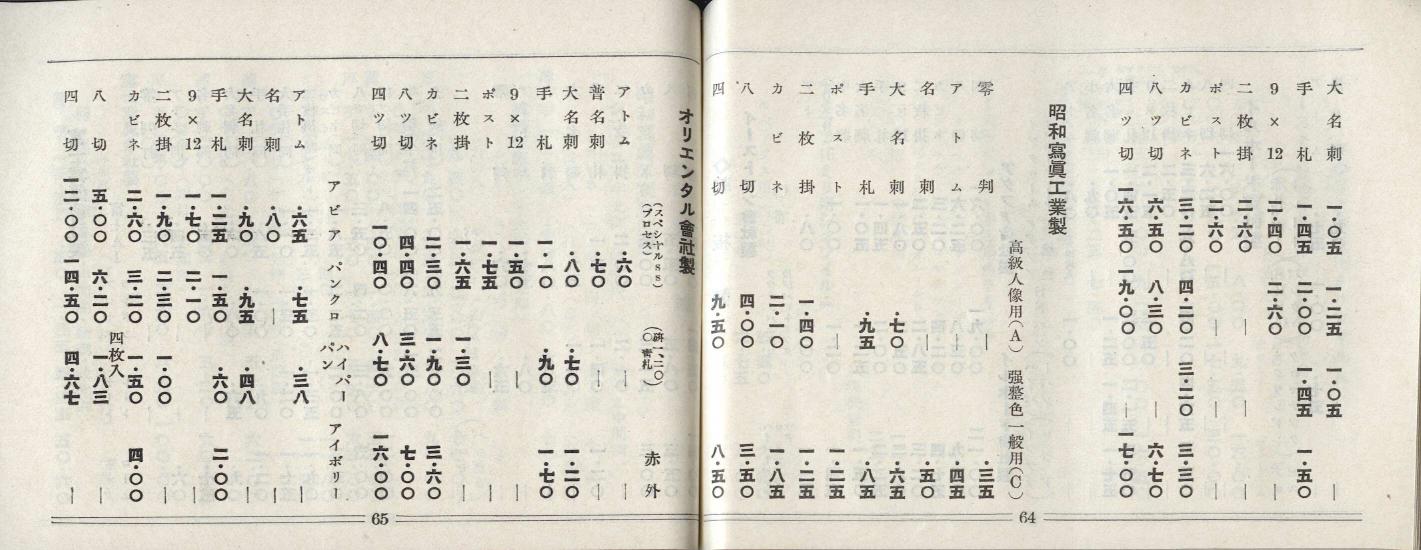 大名刺 一・〇五 一・二五 一・〇五 ―
手札 一・四五 二・〇〇 一・四五 一・五〇
9×12 二・四〇 二・六〇
二枚掛 二・六〇 ― ―
ポスト 二・六〇 ― ― ―
カビネ 三・二〇 四・二〇 三・二〇 三・三〇
八ツ切 六・五〇 八・三〇 ― 六・七〇
四ツ切 一六・五〇 一九・〇〇 ― 一七・〇〇
昭和寫眞工業製
高級人像用(A) 强整色一般用(C)
零判 ― ・三五
アトム ― ・四五
名刺 ― ・五〇
大名刺 ・七〇 ・六五
手札 ・九五 ・八五
ポスト ― 一・二五
二枚掛 一・四〇 一・二五
カビネ 二・一〇 一・八五
八切 四・〇〇 三・五〇
四切 九・五〇 八・五〇
64
オリエンタル會社製
(スペシヤルSS)(プロセス) 赤外
アトム ・六〇 ― ―
普名刺 ・七〇 ― ―
大名刺 ・八〇 ・七〇 一・二〇
手札 一・一〇 ・九〇 一・七〇
9×12 一・五〇 ― ―
ポスト 一・七五 ― ―
二枚掛 一・六五 一・三〇 ―
カビネ 二・三〇 一・九〇 三・六〇
八ツ切 四・四〇 三・六〇 七・〇〇
四ツ切 一〇・四〇 八・七〇 一六・〇〇
アビア パンクロ ハイパーパン アイボリ
アトム ・六五 ・七五 ・三八 ―
名刺 ・八〇 ― ―
大名刺 ・九〇 ・九五 ・四八 ―
手札 一・二五 一・五〇 ・六〇 二・〇〇
9×12 一・七〇 二・一〇 ―
二枚掛 一・九〇 二・三〇 一・〇〇 ―
カビネ 二・六〇 三・二〇 一・五〇 四・〇〇
四枚入
八切 五・〇〇 六・二〇 一・八三 ―
四切 一二・〇〇 四・五〇 四・六七 ―
65